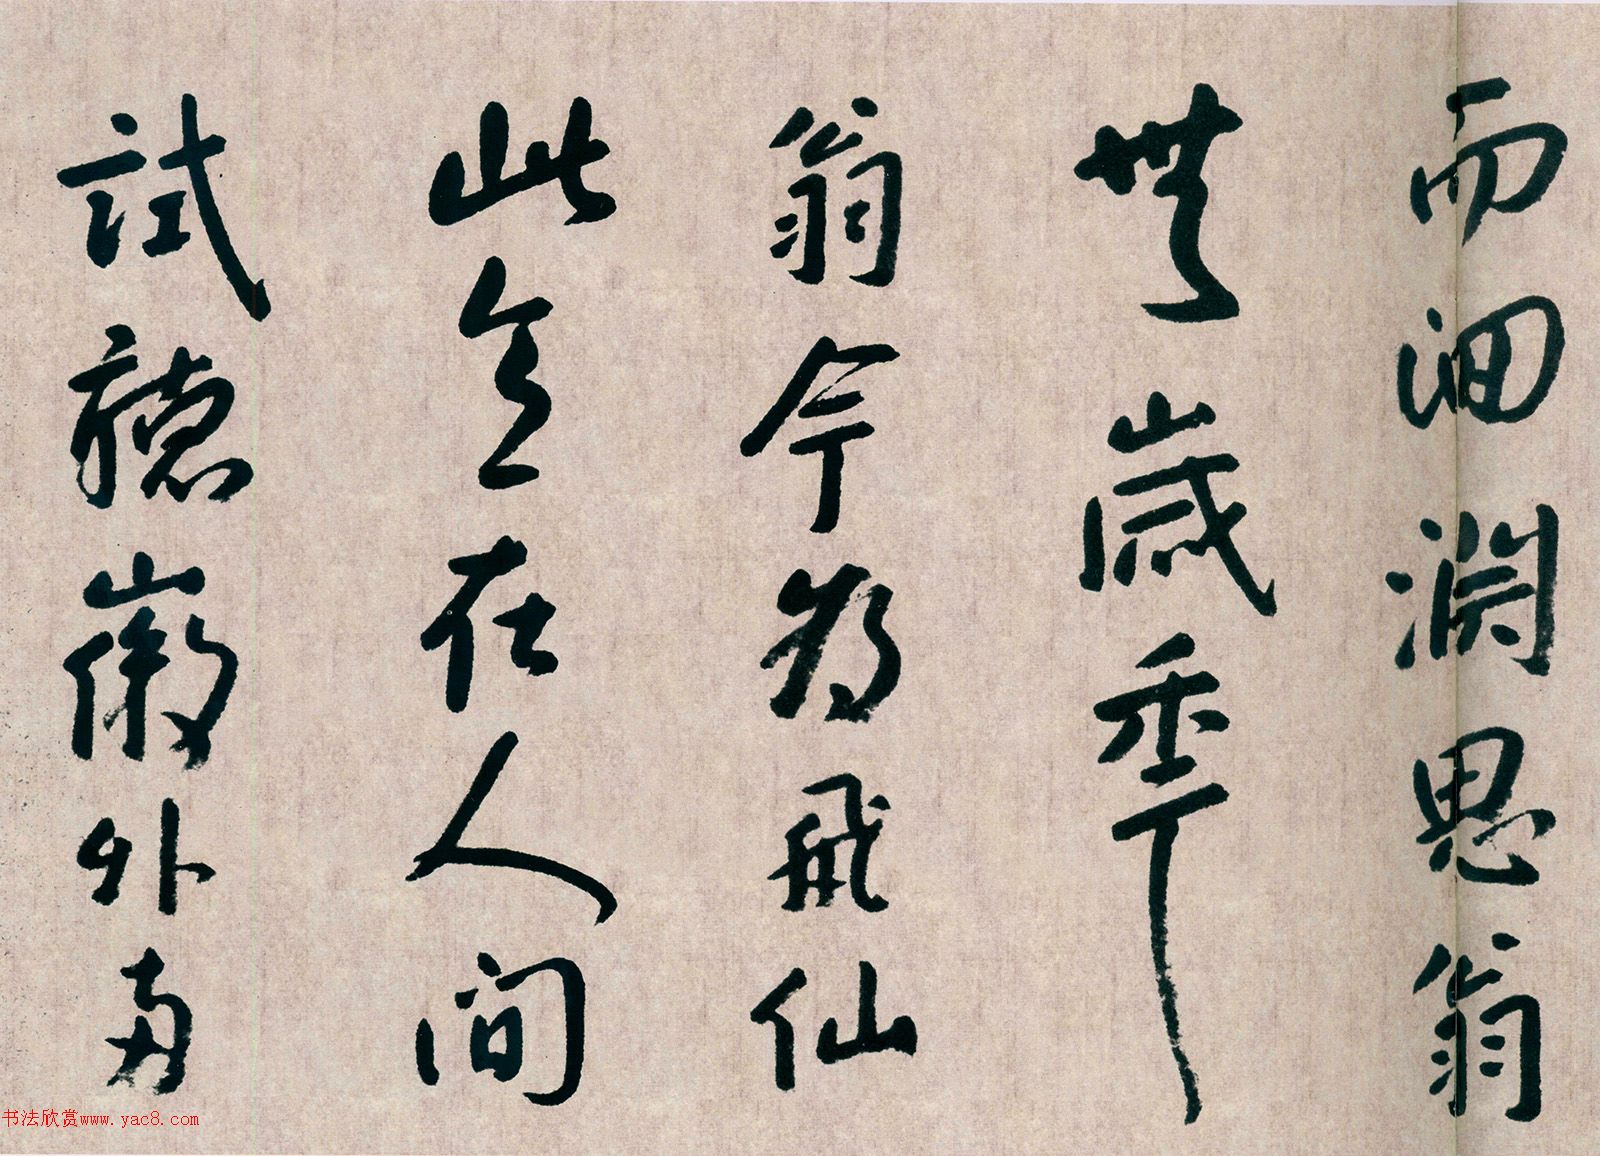 而洄淵思翁
無歲年
翁今為飛仙
此意在人間
試聽徽外兩
书法欣赏www.yac8.com